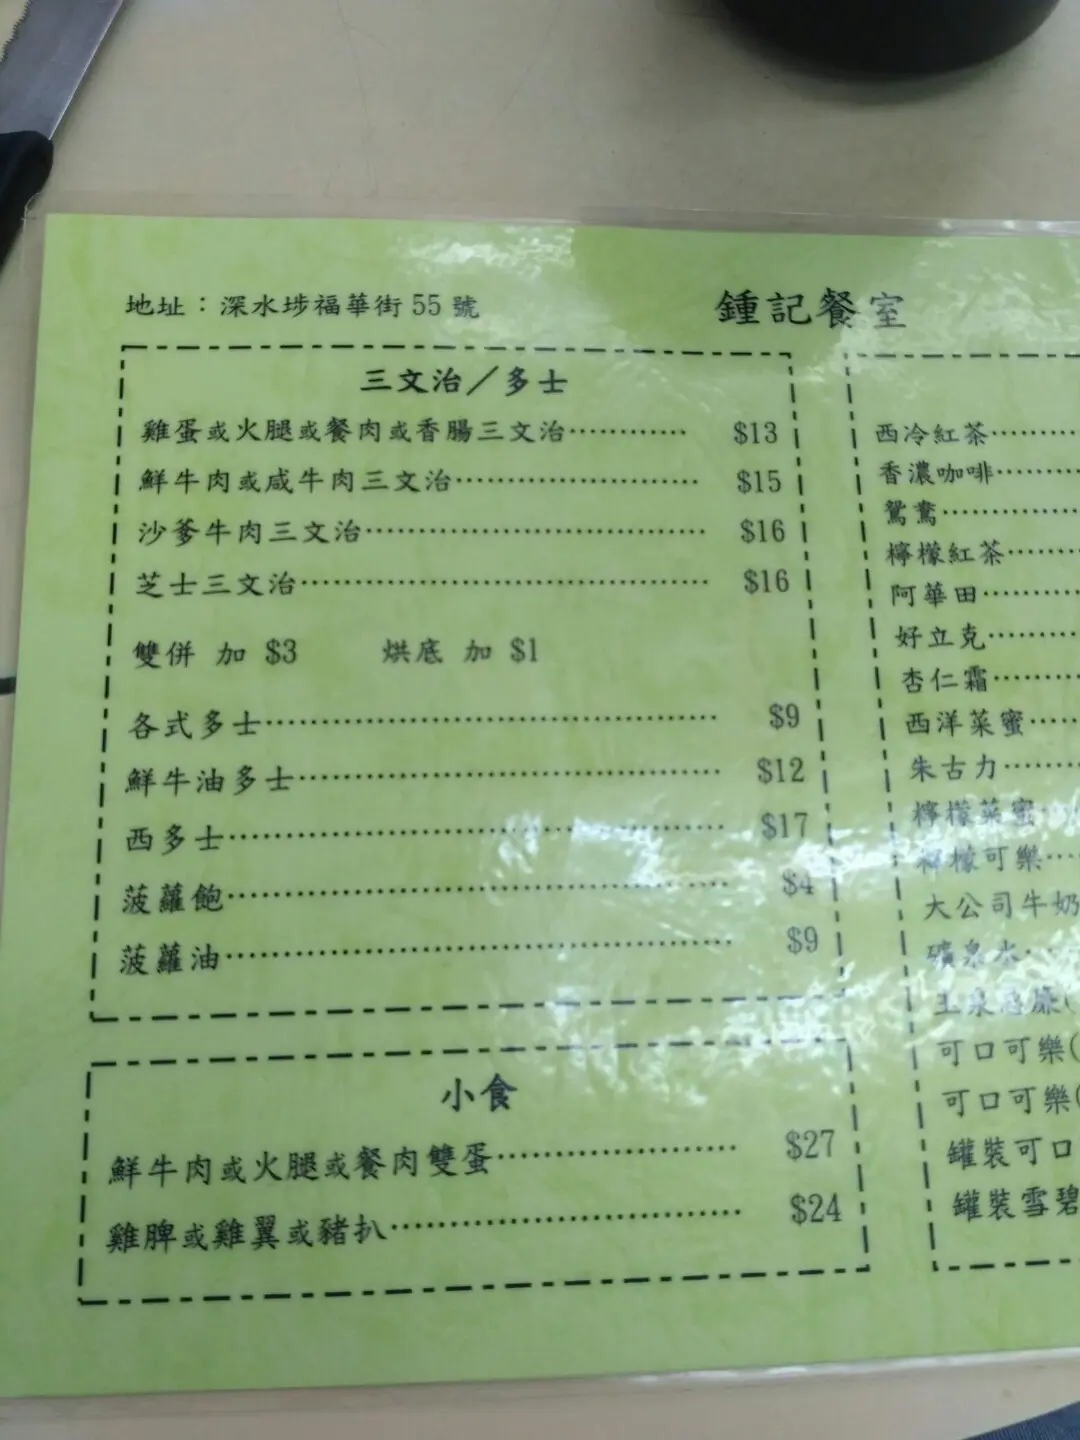 地址：深水埗福華街 55 號
鍾記餐室
三文治／多士
雞蛋或火腿或餐肉或香腸三文治………… $13
鮮牛肉或咸牛肉三文治…………………… $15
沙爹牛肉三文治…………………………… $16
芝士三文治………………………………… $16
雙併 加 $3 烘底 加 $1
各式多士…………………………………… $9
鮮牛油多士………………………………… $12
西多士……………………………………… $17
菠蘿飽……………………………………… $4
菠蘿油……………………………………… $9
小食
鮮牛肉或火腿或餐肉雙蛋………………… $27
雞脾或雞翼或豬扒………………………… $24
西冷紅茶………
香濃咖啡………
鴛鴦…………
檸檬紅茶………
阿華田………
好立克………
杏仁霜………
西洋菜蜜……
朱古力………
檸檬菜蜜…
檸檬可樂…
大公司牛奶
礦泉水……
玉泉忌廉(
可口可樂(
可口可樂(
罐裝可口
罐裝雪碧